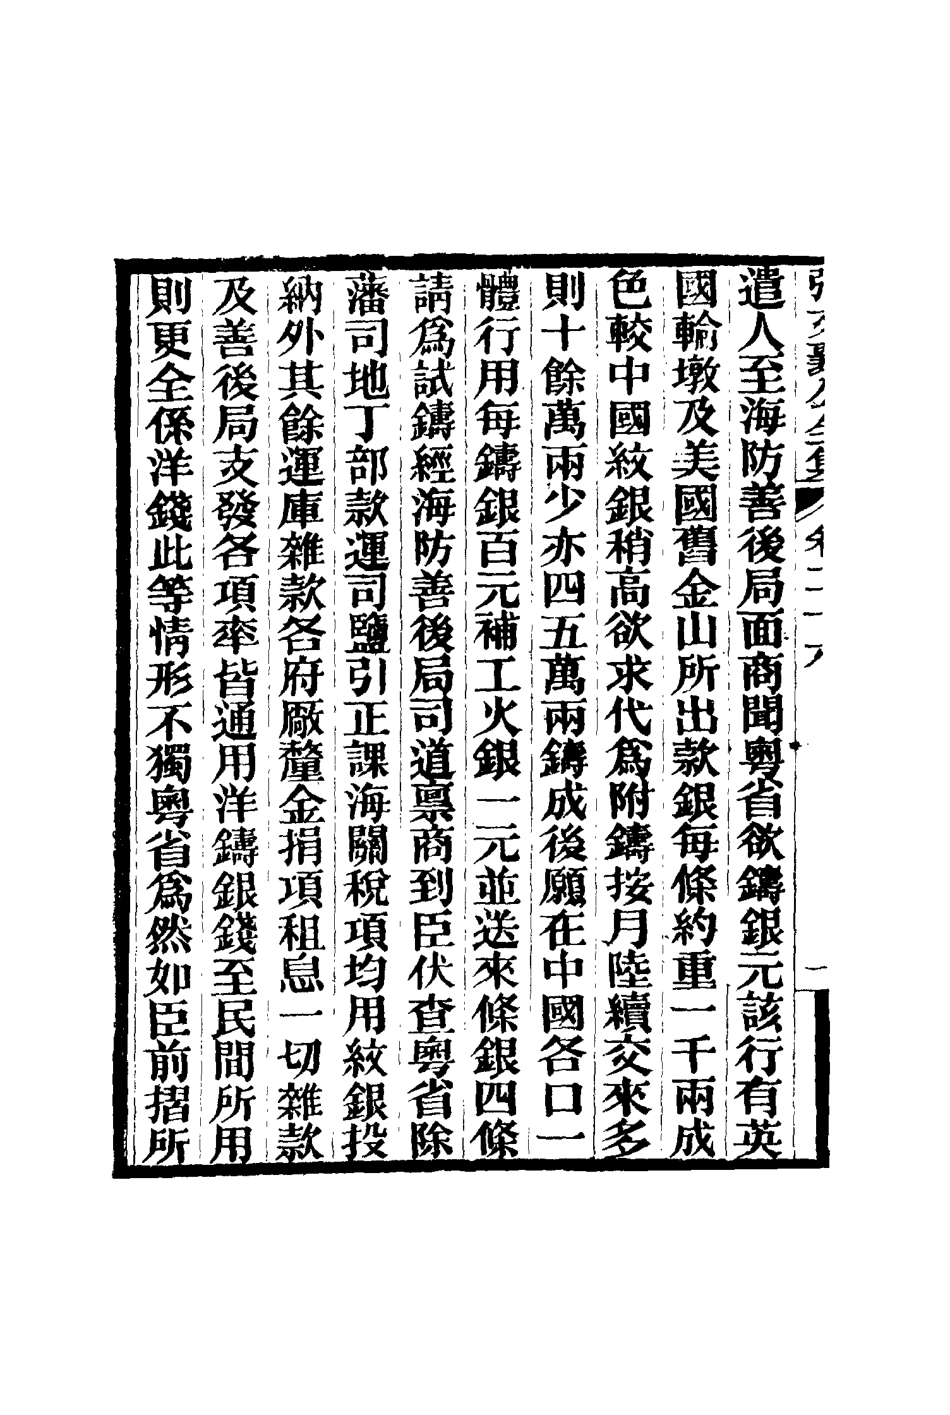 遣人至海防善後局面商聞粵省欲鑄銀元該行有英
國輪墩及美國舊金山所出款銀每條約重一千兩成
色較中國紋銀稍高欲求代爲附鑄按月陸續交來多
則十餘萬兩少亦四五萬兩鑄成後願在中國各口一
體行用每鑄銀百元補工火銀一元並送來條銀四條
請爲試鑄經海防善後局司道稟商到臣伏查粵省除
藩司地丁部款運司鹽引正課海關稅項均用紋銀投
納外其餘運庫雜款各府廠釐金捐項租息一切雜款
及善後局支發各項率皆通用洋鑄銀錢至民間所用
則更全係洋錢此等情形不獨粵省爲然如臣前摺所